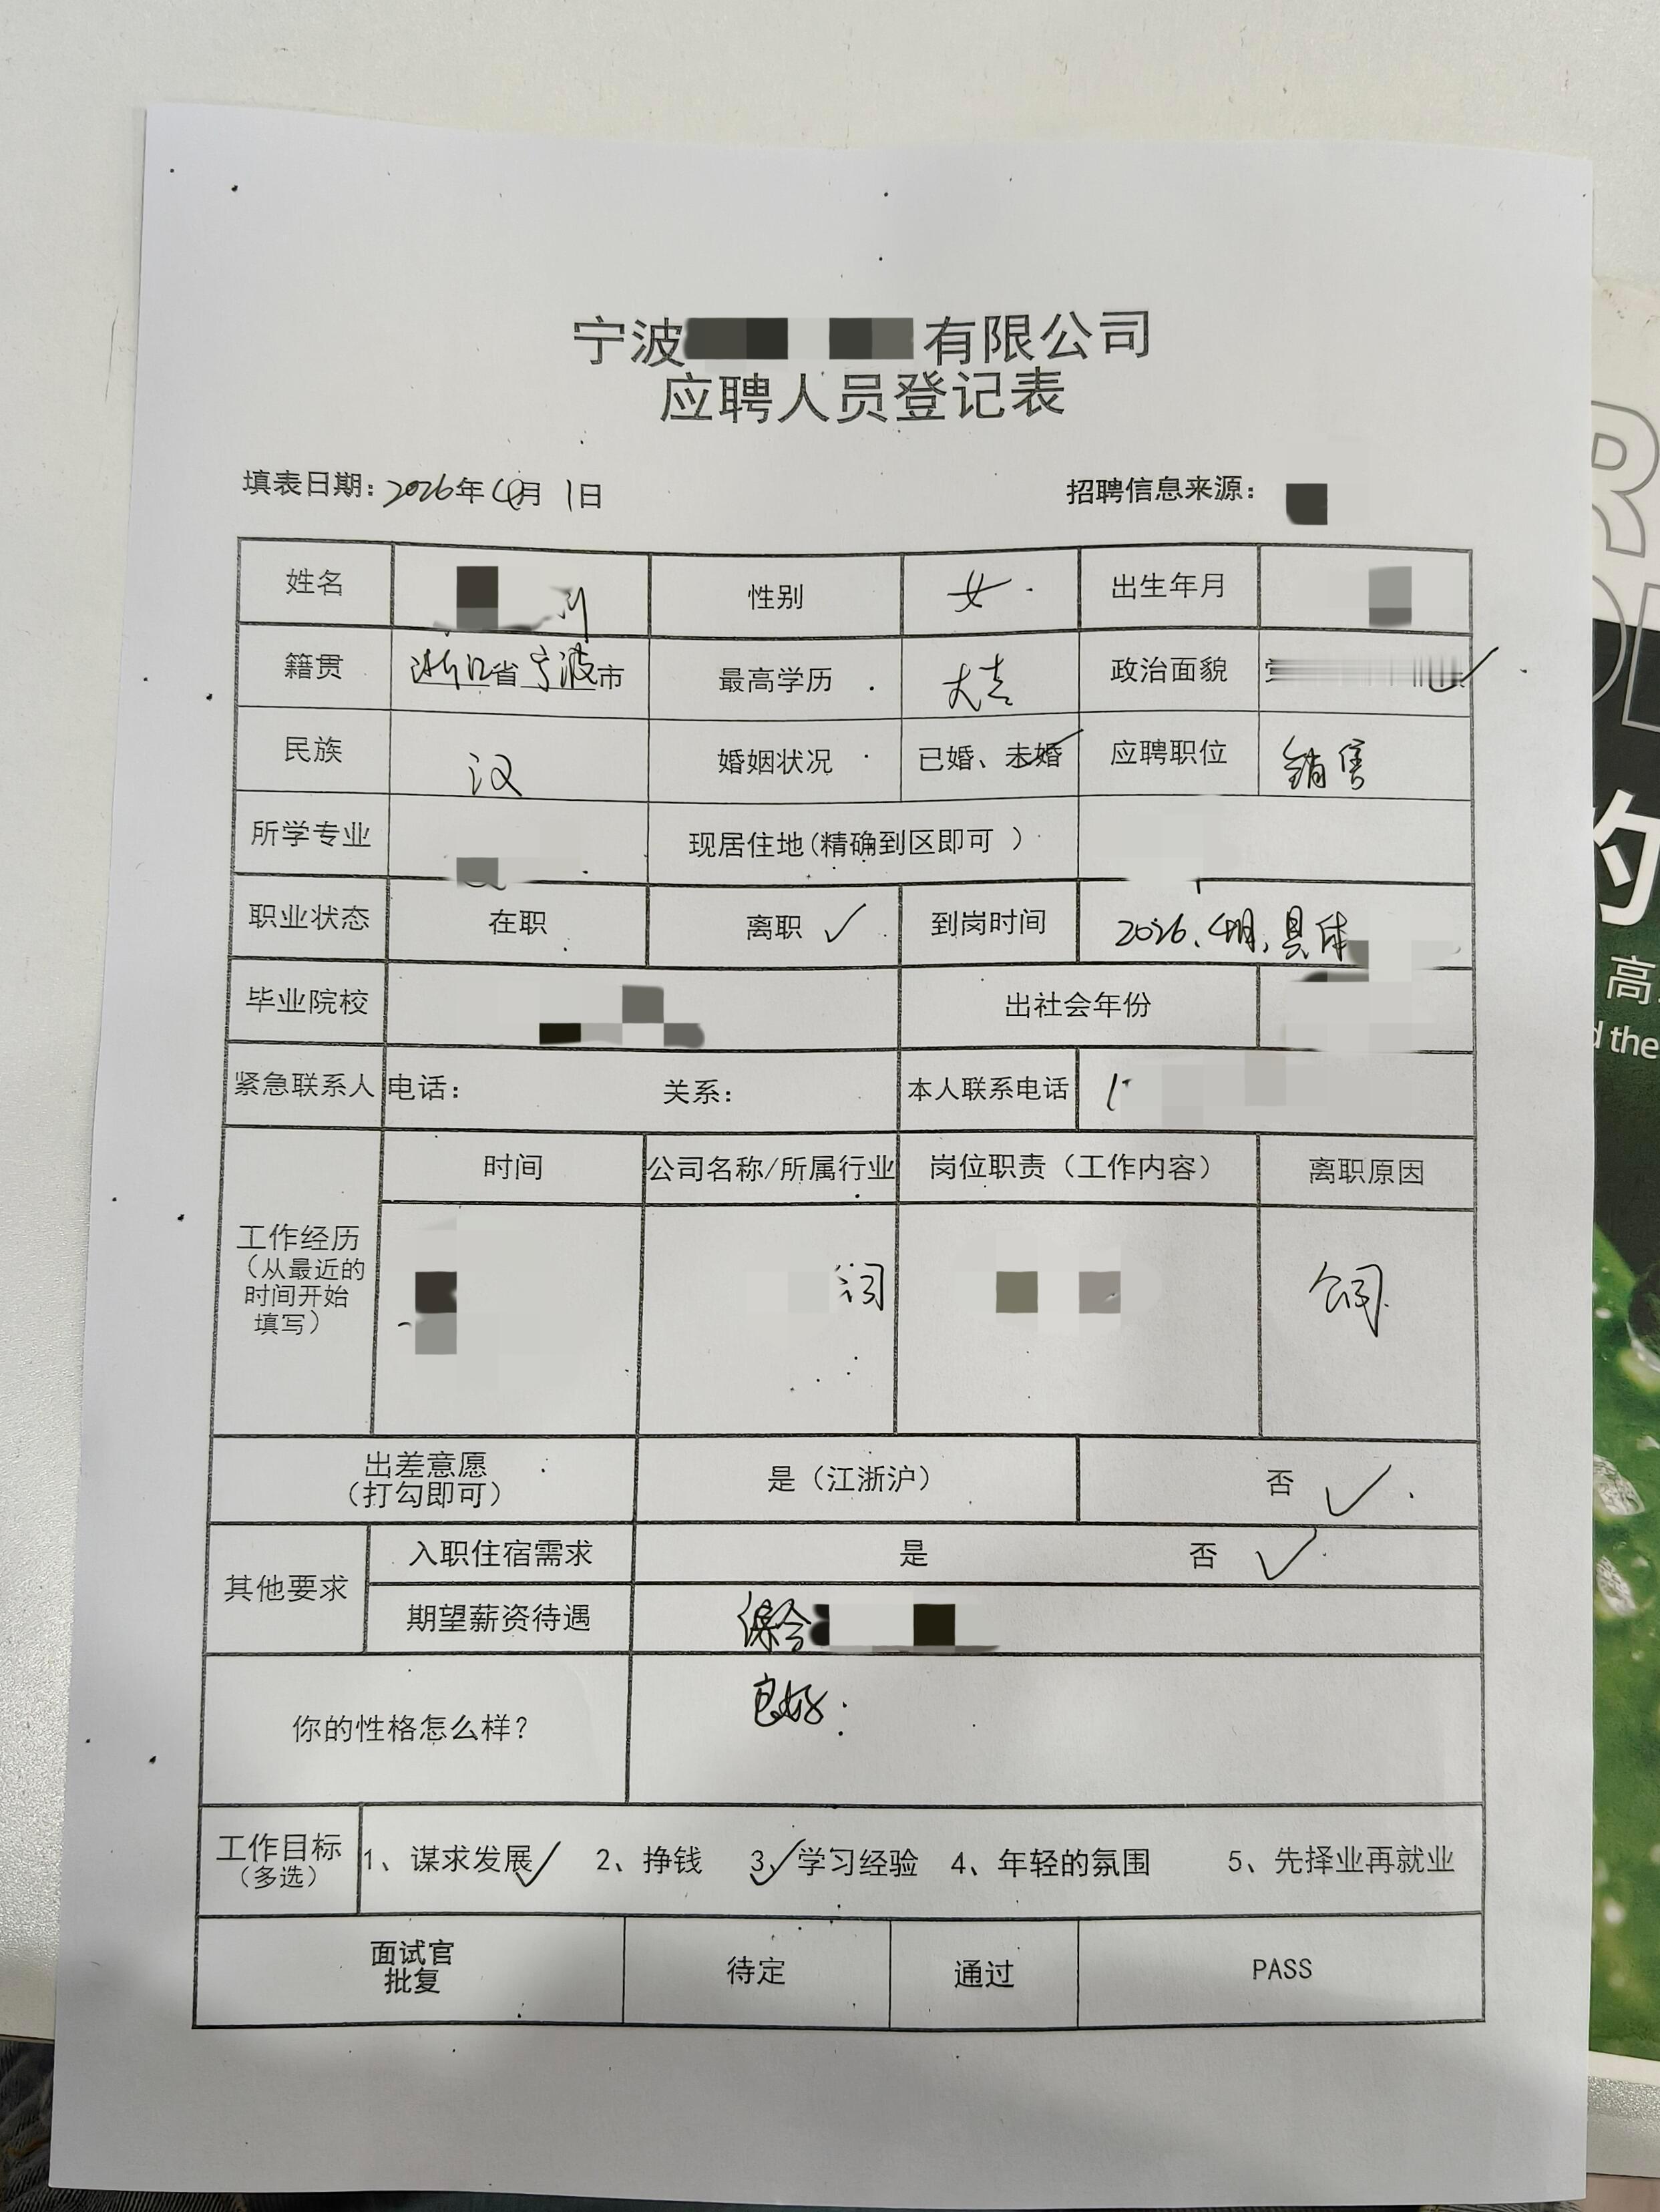 宁波 有限公司
应聘人员登记表
填表日期：2026年4月1日 招聘信息来源：
姓名 性别 女 出生年月
籍贯 浙江省宁波市 最高学历 大专 政治面貌
民族 汉 婚姻状况 已婚、未婚 应聘职位 销售
所学专业 现居住地(精确到区即可 )
职业状态 在职 离职 ✓ 到岗时间 2026、4月、具体
毕业院校 出社会年份
紧急联系人 电话： 关系： 本人联系电话 1
时间 公司名称/所属行业 岗位职责（工作内容） 离职原因
工作经历
（从最近的
时间开始
填写）
公司
出差意愿
（打勾即可）
是（江浙沪） 否 ✓
其他要求
入职住宿需求 是 否 ✓
期望薪资待遇 综合
你的性格怎么样？ 良好
工作目标
（多选）
1、谋求发展✓ 2、挣钱 3、✓学习经验 4、年轻的氛围 5、先择业再就业
面试官
批复
待定 通过 PASS
的
高
d the